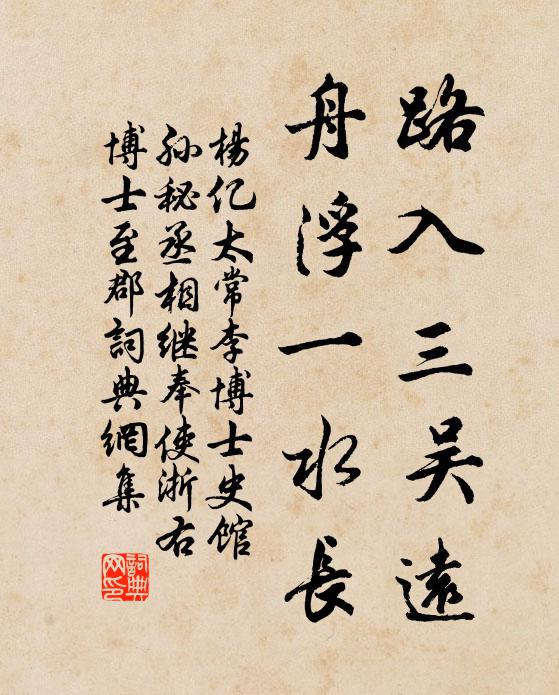 路入三吴遠
舟浮一水長
楊亿太常李博士史館
孙秘丞相継奉使浙右
博士至郡詞典網集
詞典网印